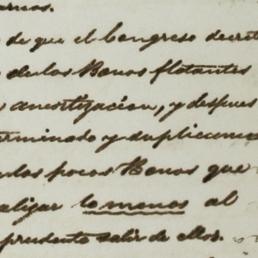 de que el Congreso decret
de los Bonos flotantes
amortizacion, y despues
terminado y
los pocos Bonos que
alizar lo menos al
prudente salir de ellos.